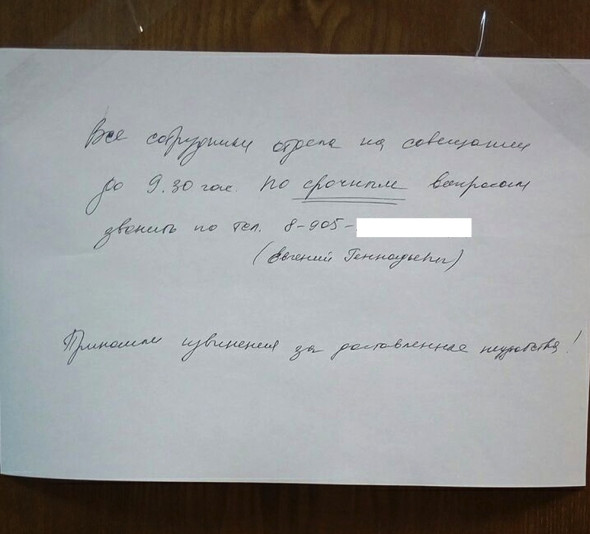 Все сотрудники отдела на совещании
до 9.30 час. По срочным вопросам
звонить по тел. 8-905-
(Евгений Геннадьевич)
Приносим извинения за доставленные неудобства!